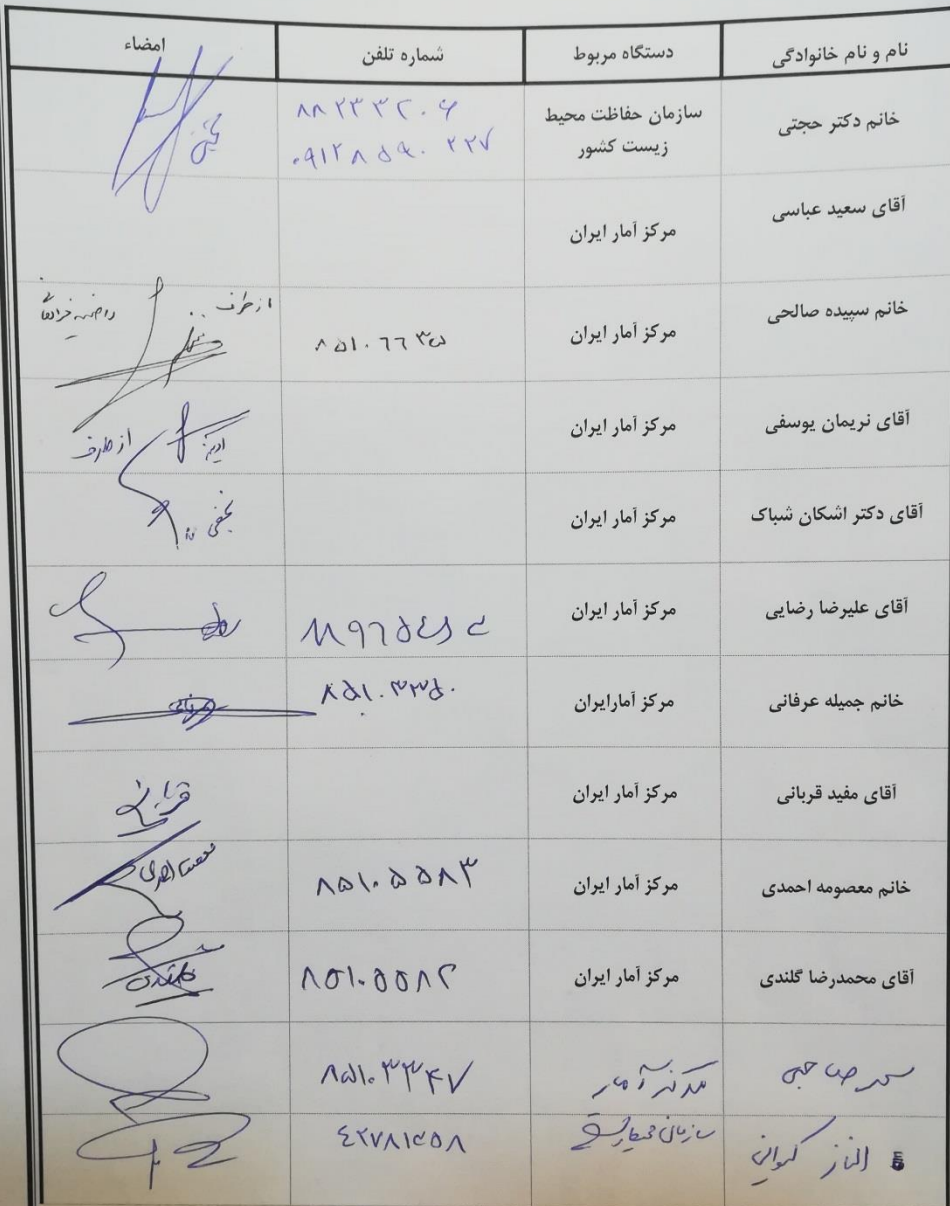 نام و نام خانوادگی	دستگاه مربوط	شماره تلفن	امضاء
خانم دکتر حجتی	سازمان حفاظت محیط	۸۸۲۳۳۲۰۶
زیست کشور	۰۹۱۲۸۵۹۰۲۲۷
آقای سعید عباسی	مرکز آمار ایران
خانم سپیده صالحی	مرکز آمار ایران	۸۵۱۰۶۶۳۵	از طرف
آقای نریمان یوسفی	مرکز آمار ایران	از طرف
آقای دکتر اشکان شباک	مرکز آمار ایران	نجفی
آقای علیرضا رضایی	مرکز آمار ایران
خانم جمیله عرفانی	مرکز آمارایران	۸۵۱۰۳۳۵۰	عرفانی
آقای مفید قربانی	مرکز آمار ایران	قربانی
خانم معصومه احمدی	مرکز آمار ایران	۸۵۱۰۵۵۸۳	معصومه احمدی
آقای محمدرضا گلندی	مرکز آمار ایران	۸۵۱۰۵۵۸۲	گلندی
سحر صاحبی	مرکز آمار	۸۵۱۰۳۳۴۷
الناز کیوانی	۴۲۷۸۱۴۵۸